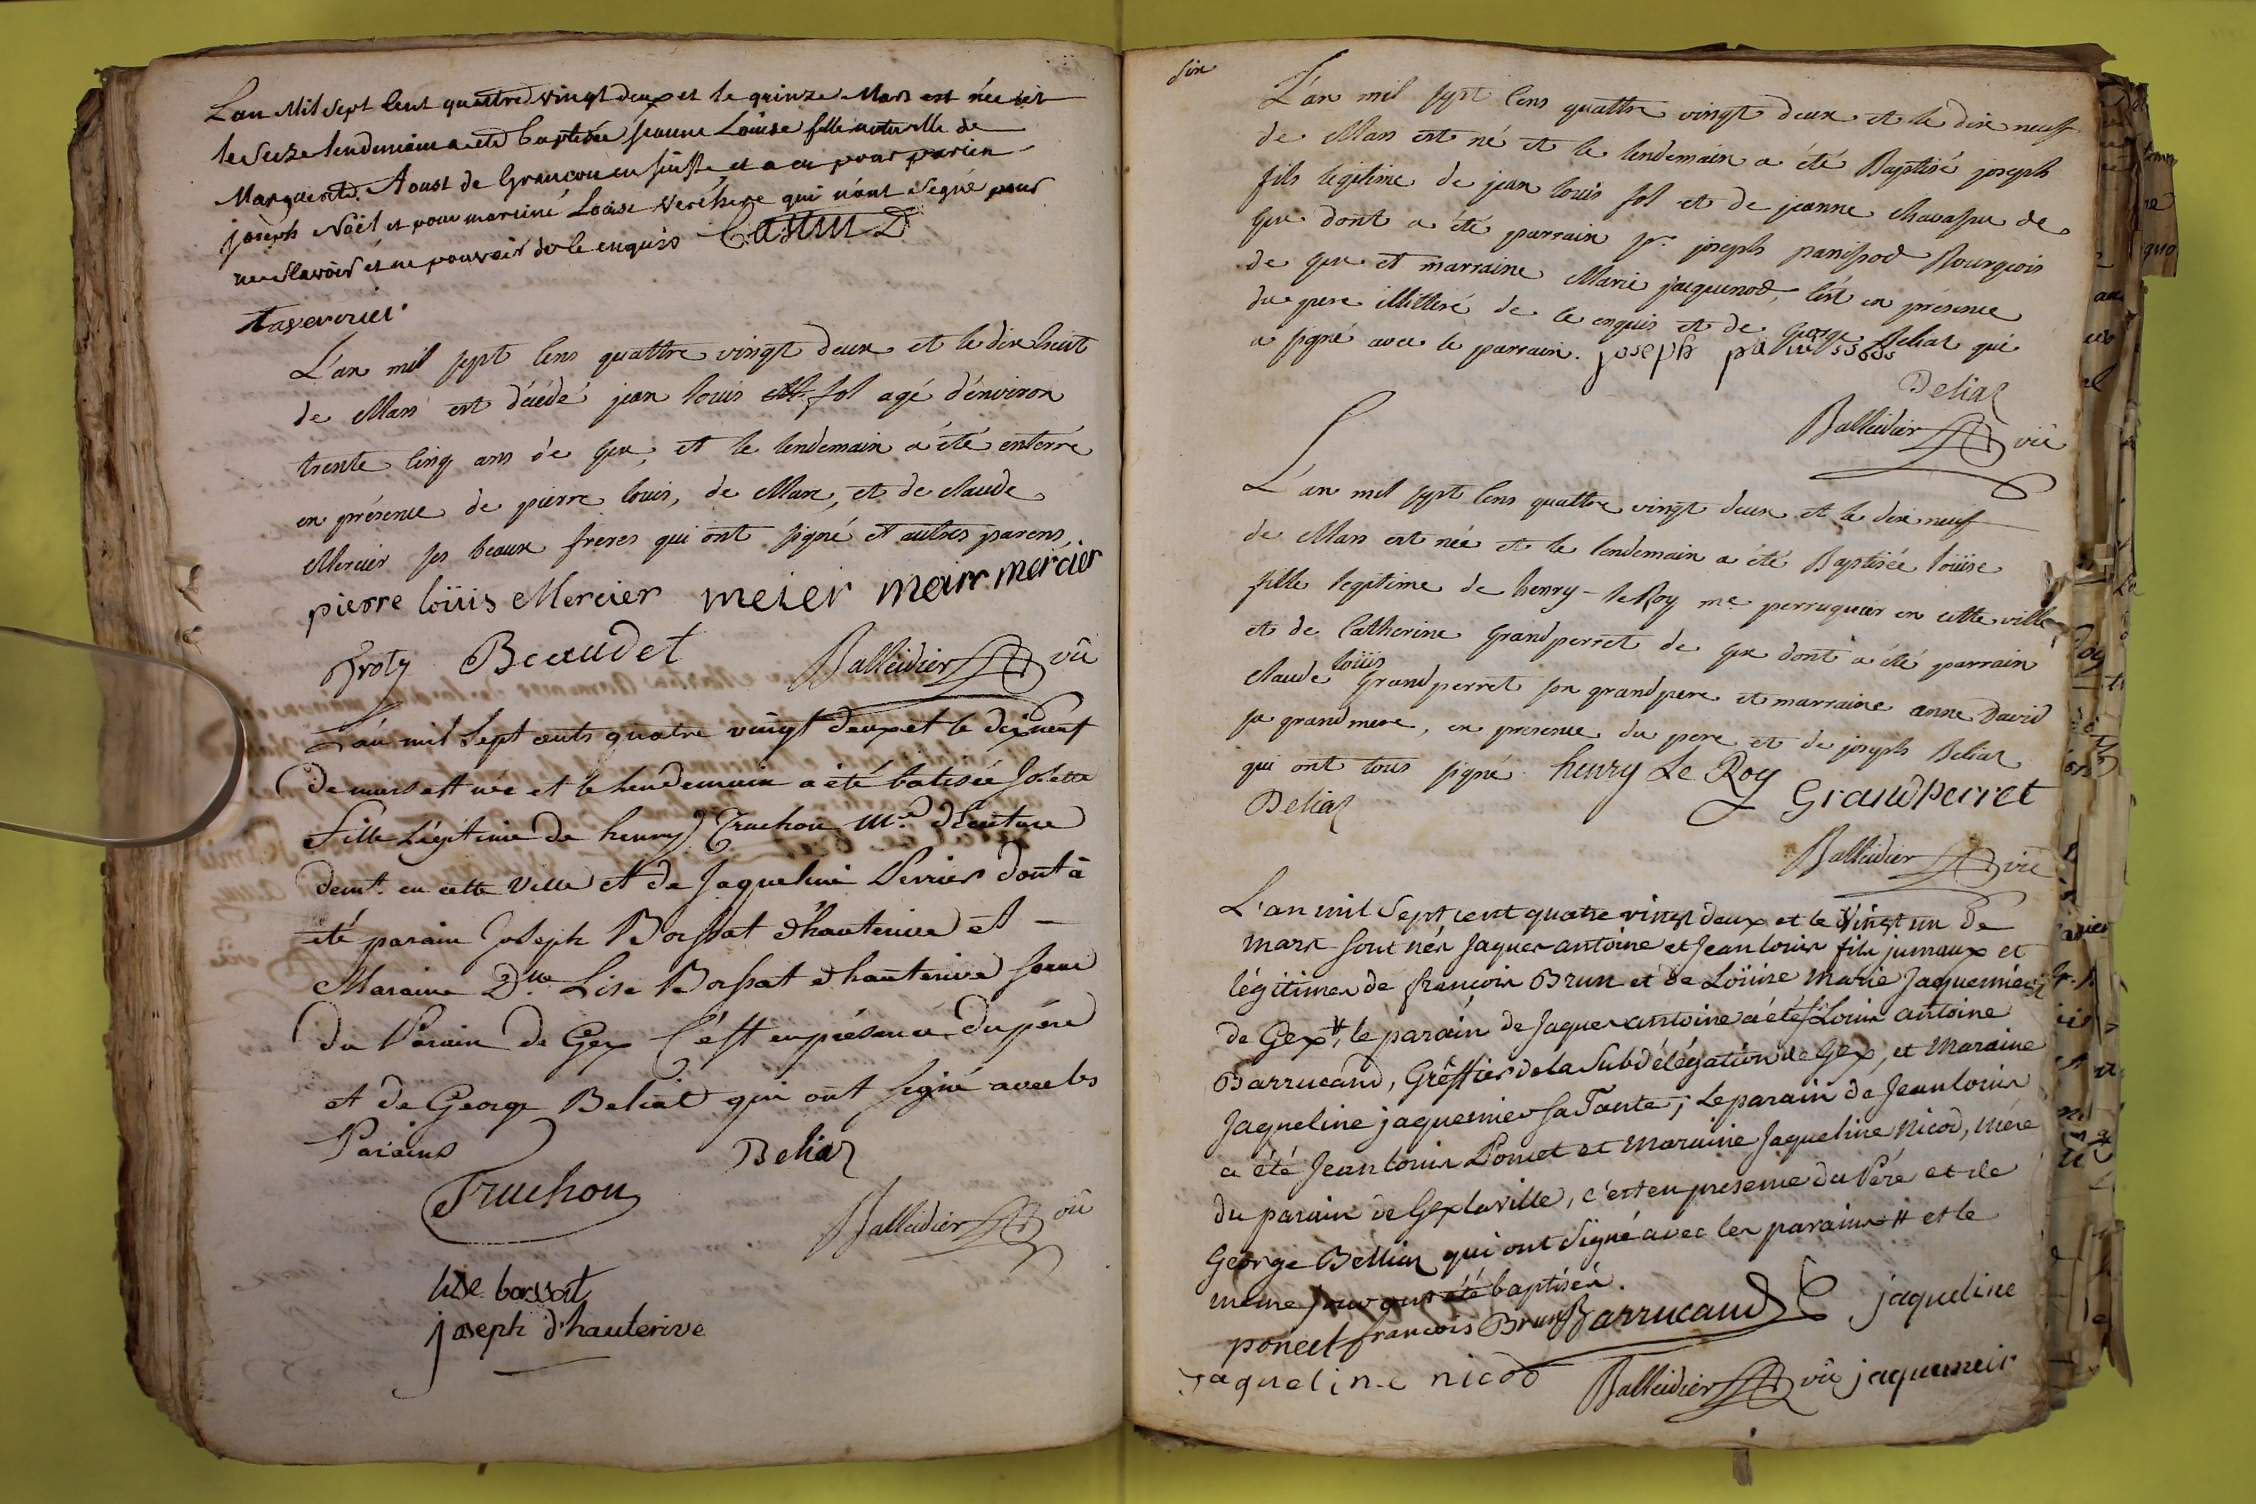 L'an Mil Sept Cent quattre vingt deux et le quinze Mars est née et
le Seize lendemain a été baptisée jeanne Loüise fille naturelle de
Marguerite Aoust de Grancour en suisse, et a eu pour parien
joseph Noël et pour marainé Loüise Veréhere qui n'ont Segné pour
ne Slavoir et ne pouvoir de le enquis Castin
Taverniei
L'an mil sept Cens quattre vingt deux et le dix huit
de Mars est décédé jean louis fol agé d'environ
trente Cinq ans de Gex, et le lendemain a été enterré
en présence de pierre louis, de Marc, et de claude
Mercier ses beaux freres qui ont signé et autres parens
pierre loüis Mercier meier marc mercier
Beaudet
Balleidier vic
L'an mil Sept cents quatre vingt deux et le dixneuf
de mars est née et le lendemain a été batisée Josette
fille Légitime de henry Truchon Me d'Ecriture
demt. en cette Ville et de Jaqueline Perrier dont à
été parain Joseph Bossat d'hauterive et
Maraine Dlle Lise Bossat d'hauterive Soeur
du Parain de Gex C'est en présence du père
et de George Beliat qui ont signé avec les
Parains
Beliat
Truchon
Balleidier vic
lise bossat
joseph d'hauterive
dix
L'an mil sept Cens quattre vingt deux et le dix neuf
de Mars est né et le lendemain a été Baptisé joseph
fils légitime de jean louis fol et de jeanne chavassu de
Gex dont a été parrain sr. joseph panissod Bourgeois
de gex et marraine Marie jacquenod, C'est en présence
du pere illittéré de ce enquis et de George Beliat qui
a signé avec le parrain. joseph panissod
Beliat
Balleidier vic
L'an mil sept Cens quattre vingt deux et le dix neuf
de Mars est née et le lendemain a été Baptisée loüise
fille legitime de henry le Roy me perruquier en cette ville
et de Catherine grandperret de gex dont a été parrain
claude loüis Grandperret son grand pere et marraine anne David
sa grand mere, en présence du pere et de joseph Beliat
qui ont tous signé henry Le Roy
Beliat Grandperret
Balleidier vic
L'an mil Sept cent quatre vingt deux et le vingt un de
mars sont nés Jaques antoine et Jean louis fils jumaux et
légitimes de françois Brun et de Loüise Marie Jaquemier
de Gex #, le parain de Jaques antoine a été Sr Louis antoine
Barrucand, Greffier de la Subdélégation de Gex, et Maraine
Jaqueline jaquemier sa Tante; Le parain de Jean louis
a été Jean louis Poncet et Maraine Jaqueline Nicod, mére
du parain de Gex la ville, c'est en presence du Pére et de
George Beliat qui ont Signé avec les parains # et le
meme jour ont été baptisés.
poncet francois Brun Barrucand jaqueline
Jaqueline nicod Balleidier vic jaquemeir